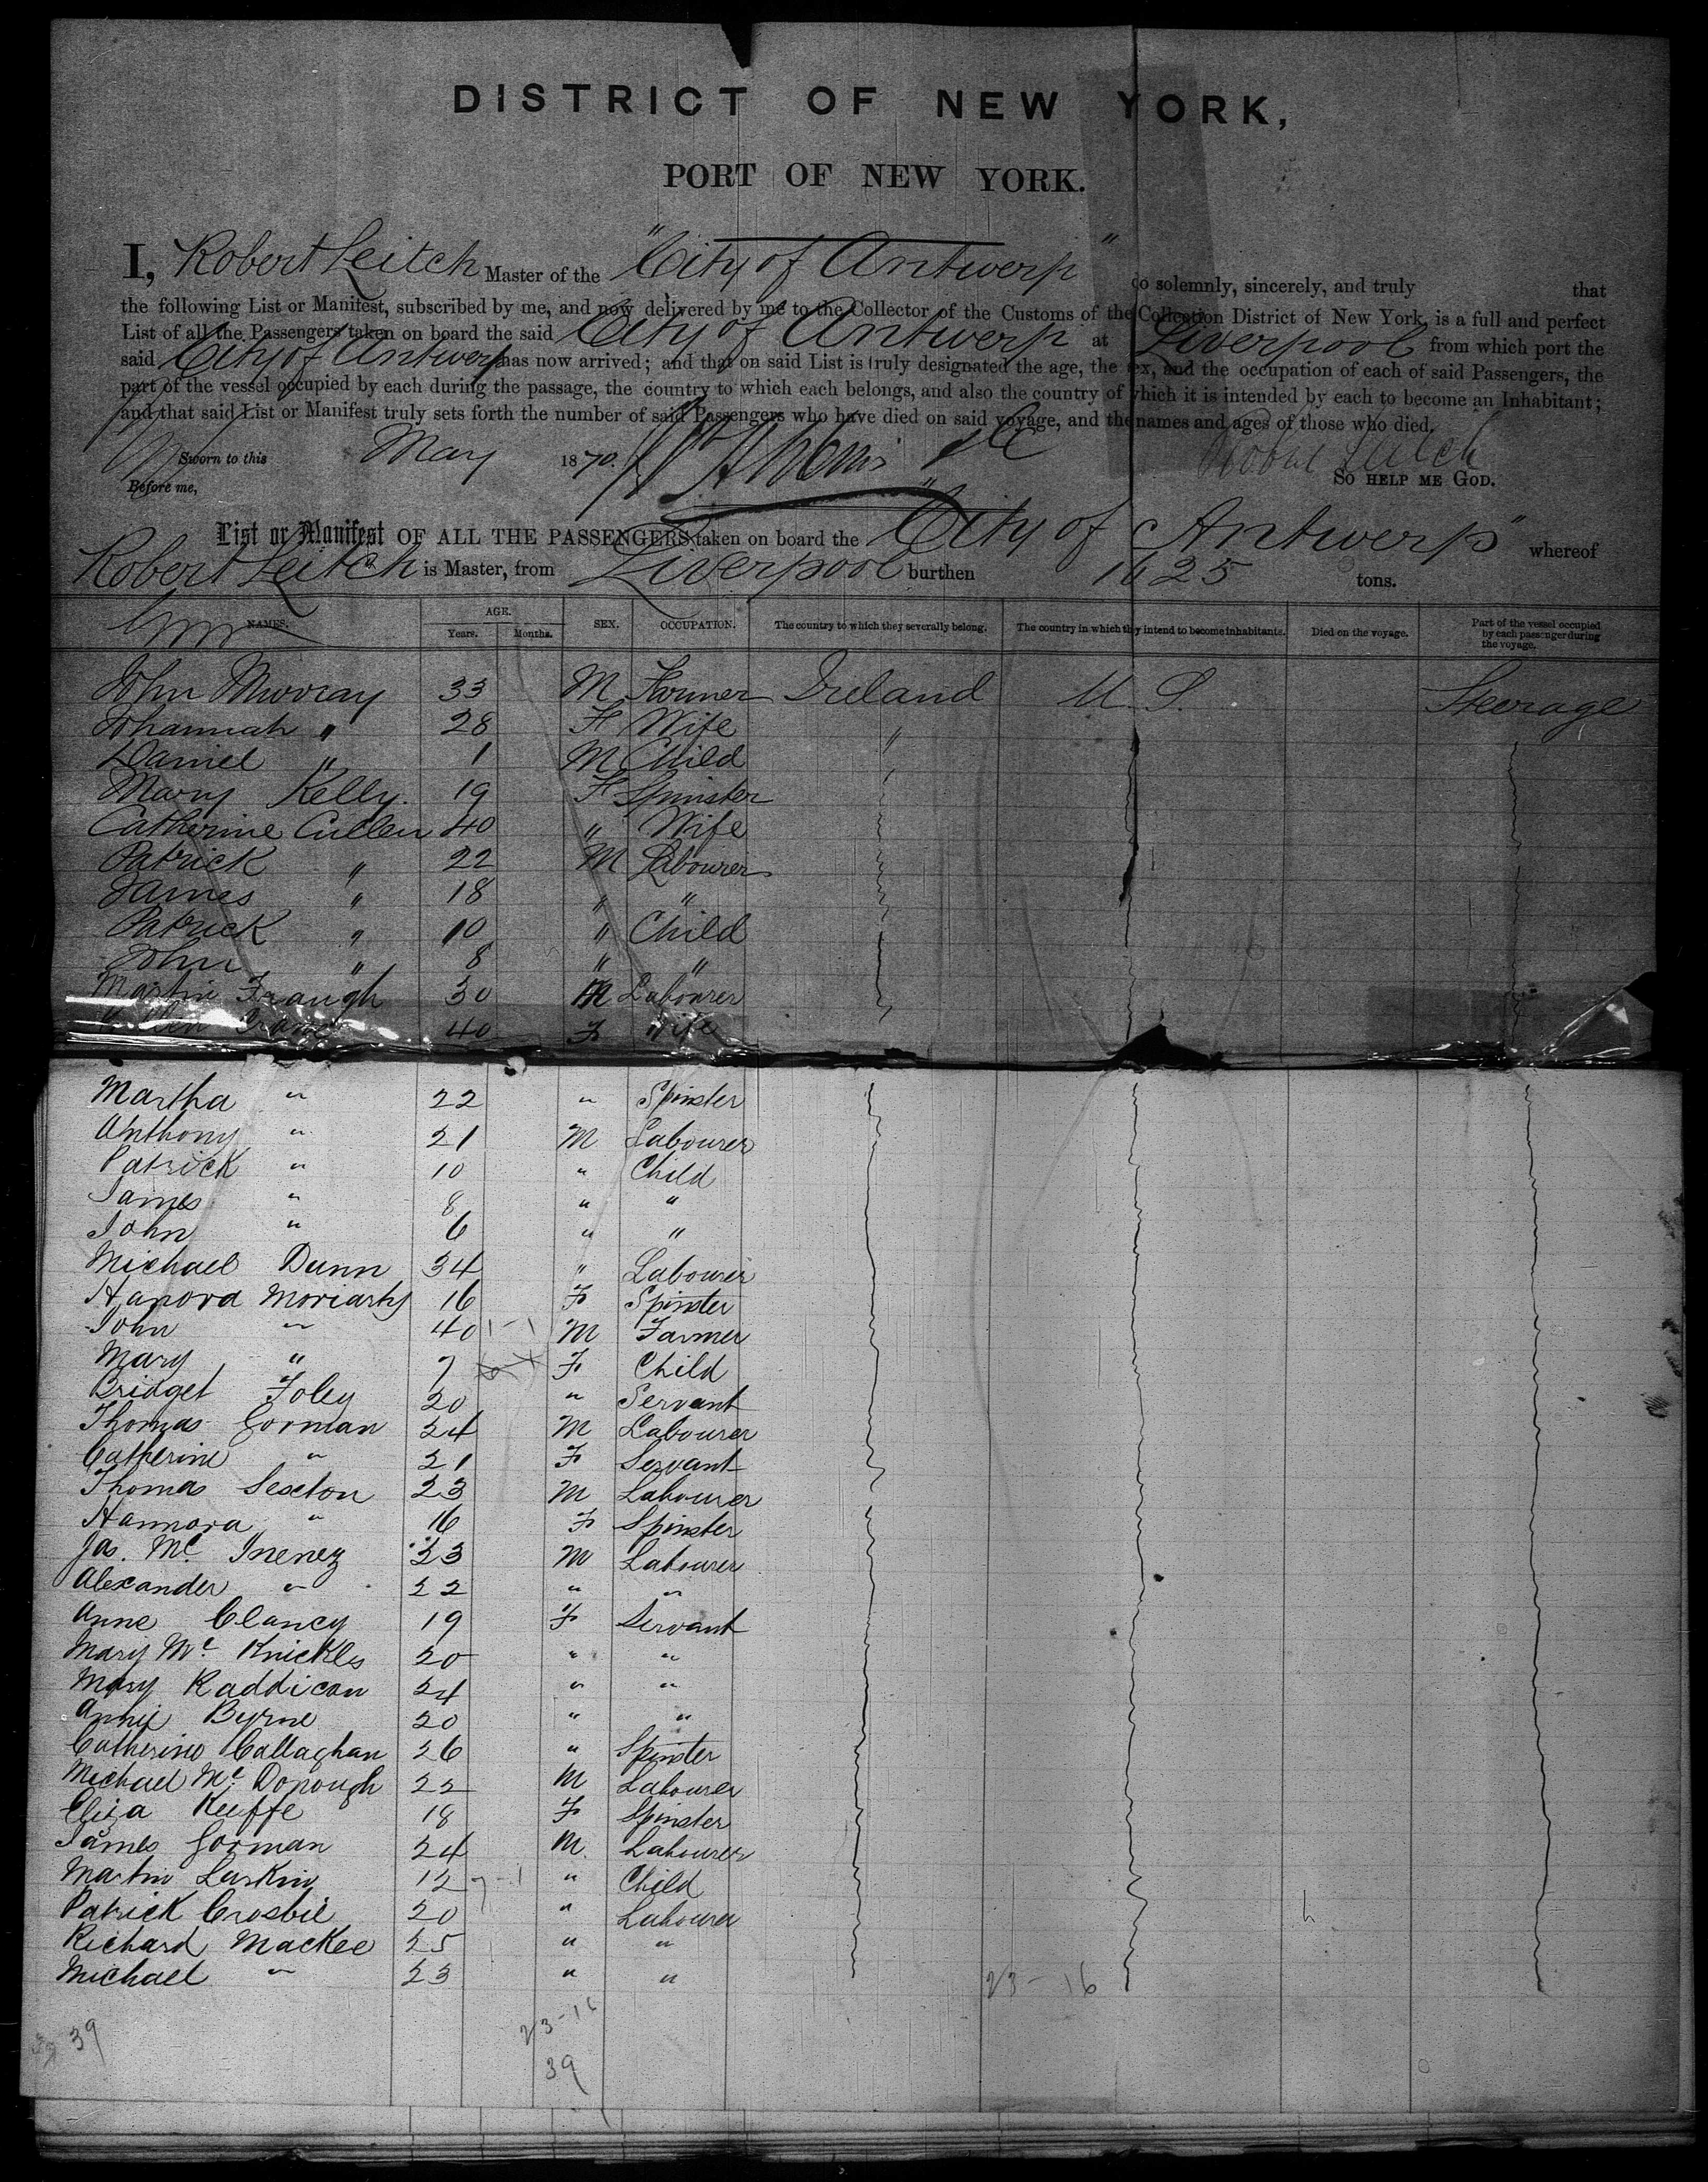 DISTRICT OF NEW YORK,
PORT OF NEW YORK.
I, Robert Leitch Master of the "City of Antwerp" do solemnly, sincerely, and truly that
the following List or Manifest, subscribed by me, and now delivered by me to the Collector of the Customs of the Collection District of New York, is a full and perfect
List of all the Passengers taken on board the said City of Antwerp at Liverpool from which port the
said City of Antwerp has now arrived; and that on said List is truly designated the age, the sex, and the occupation of each of said Passengers, the
part of the vessel occupied by each during the passage, the country to which each belongs, and also the country of which it is intended by each to become an Inhabitant;
and that said List or Manifest truly sets forth the number of said Passengers who have died on said voyage, and the names and ages of those who died.
Sworn to this May 1870. Robert Leitch
Before me, SO HELP ME GOD.
List or Manifest OF ALL THE PASSENGERS taken on board the "City of Antwerp" whereof
Robert Leitch is Master, from Liverpool burthen 1625 tons.
NAMES. AGE. Years. Months. SEX. OCCUPATION. The country to which they severally belong. The country in which they intend to become inhabitants. Died on the voyage. Part of the vessel occupied by each passenger during the voyage.
John Murray 33 M Farmer Ireland U.S. Steerage
Johannah " 28 F Wife "
Daniel " 1 M Child
Mary Kelly. 19 F Spinster
Catherine Cullen 40 " Wife
Patrick " 22 M Labourer
James " 18 " "
Patrick " 10 " Child
John " 8 " "
Martin Fraugh 30 M Labourer
40 F Wife
Martha " 22 " Spinster
Anthony " 21 M Labourer
Patrick " 10 " Child
James " 8 " "
John " 6 " "
Michael Dunn 34 " Labourer
Hanora Moriarty 16 F Spinster
John " 40 M Farmer
Mary " 7 F Child
Bridget Foley 20 " Servant
Thomas Gorman 24 M Labourer
Catherine " 21 F Servant
Thomas Sexton 23 M Labourer
Hannora " 16 F Spinster
Jas. Mc Inenez 23 M Labourer
Alexander " 22 " "
Anne Clancy 19 F Servant
Mary Mc Knickles 20 " "
Mary Raddican 24 " "
Annie Byrne 20 " "
Catherine Callaghan 26 " Spinster
Michael Mc Donough 22 M Labourer
Eliza Keeffe 18 F Spinster
James Gorman 24 M. Labourer
Martin Larkin 12 " Child
Patrick Crosbie 20 " Labourer
Richard Mackee 25 " "
Michael " 23 " "
23-16
23-16
39
39